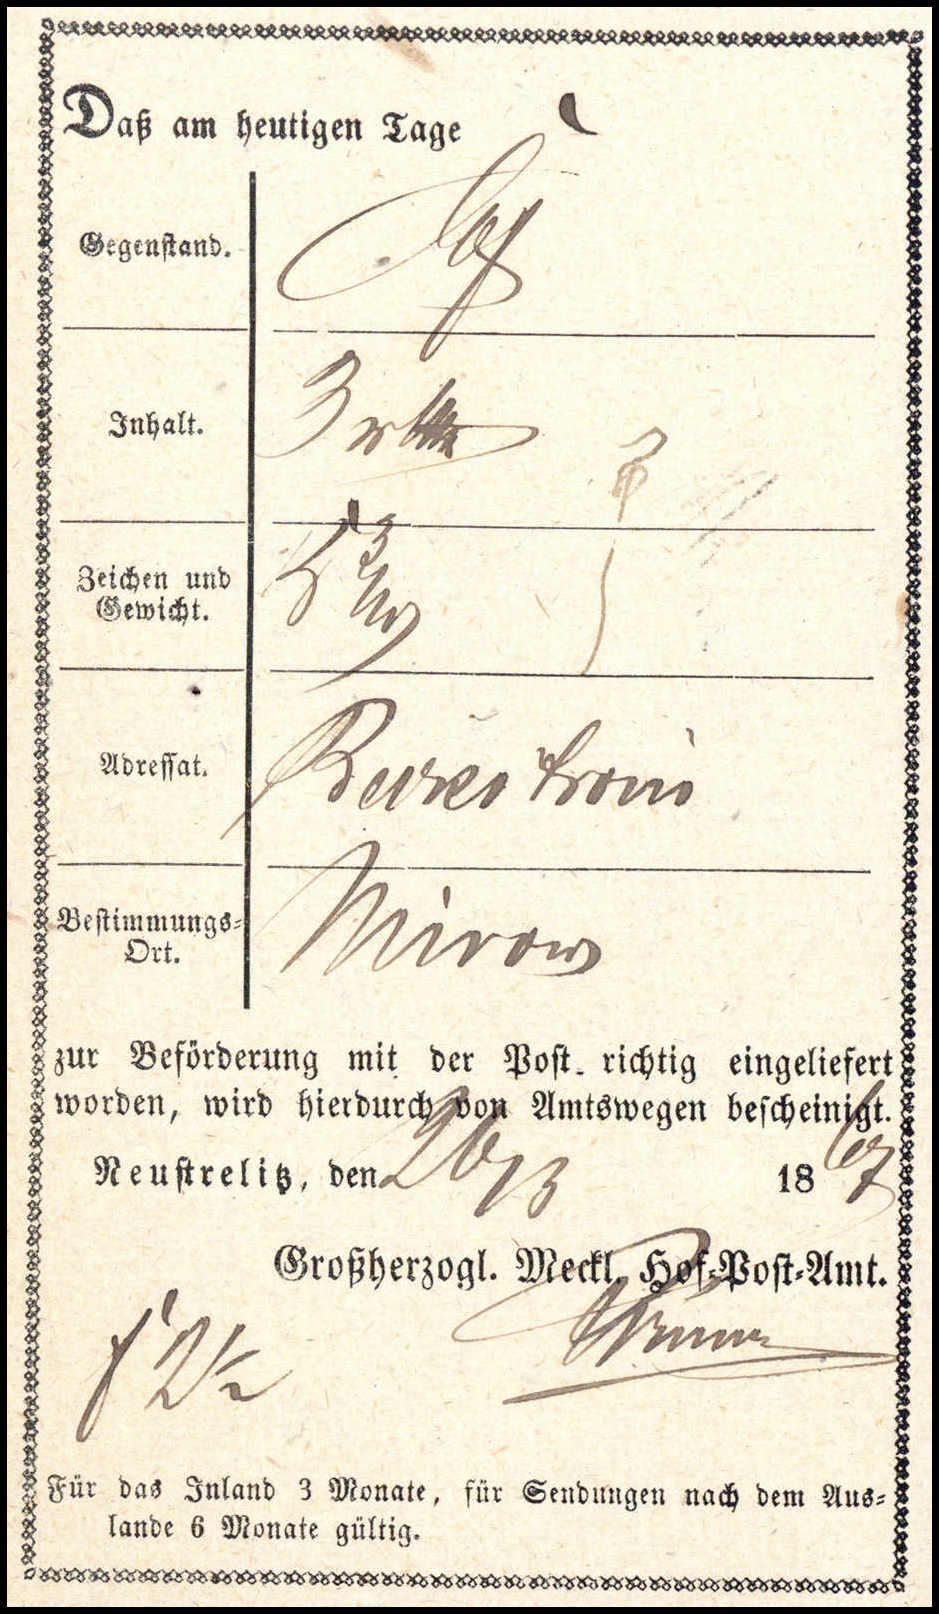 Daß am heutigen Tage
Gegenstand.
Inhalt. 3
Zeichen und
Gewicht.
Adressat.
Bestimmungs-
Ort. Mirow
zur Beförderung mit der Post richtig eingeliefert
worden, wird hierdurch von Amtswegen bescheinigt.
Neustrelitz, den 26/3 1867
Großherzogl. Meckl. Hof-Post-Amt.
2½
Für das Inland 3 Monate, für Sendungen nach dem Aus-
lande 6 Monate gültig.